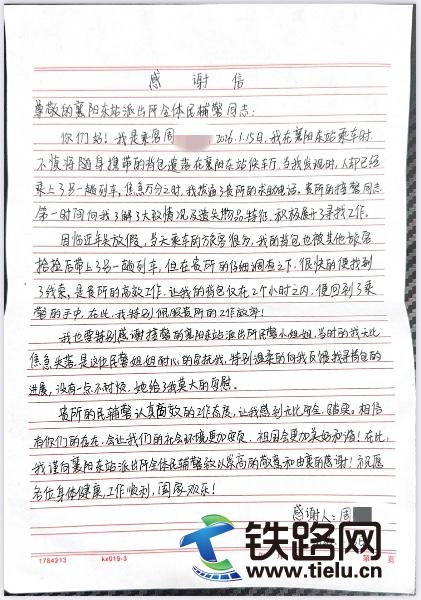 感谢信
尊敬的襄阳东站派出所全体民辅警同志:
你们好!我是乘客周 2026.1.15日,我在襄阳东站乘车时,
不慎将随身携带的背包遗落在襄阳东站候车厅,当我发现时,人却已经
乘上了另一趟列车,焦急万分之时,我拨通了贵所的求助电话。贵所的接警同志
第一时间向我了解了大致情况及遗失物品特征,积极展开了寻找工作。
因临近年关放假,当天乘车的旅客很多,我的背包也被其他旅客
捡拾后带上了另一趟列车,但在贵所的仔细调查之下,很快的便找到
了线索,是贵所的高效工作,让我的背包仅在2个小时之内,便回到了乘
警的手中,在此,我特别佩服贵所的工作效率!
我也要特别感谢接警的襄阳东站派出所民警小姐姐,当时的我无比
焦急失落,是这位民警姐姐耐心的安抚我,特别温柔的向我反馈找寻背包的
进展,没有一点不耐烦,她给了我莫大的安慰。
贵所的民辅警认真高效的工作态度,让我感到无比安全、踏实。相信
有你们的存在,会让我们的社会环境更加安定,祖国会更加美好和谐!在此,
我谨向襄阳东站派出所全体民辅警致以崇高的敬意和由衷的感谢!祝愿
各位身体健康,工作顺利,阖家欢乐!
感谢人:周
日
1784213 kx019-3 第 页
铁路网
www.tielu.cn